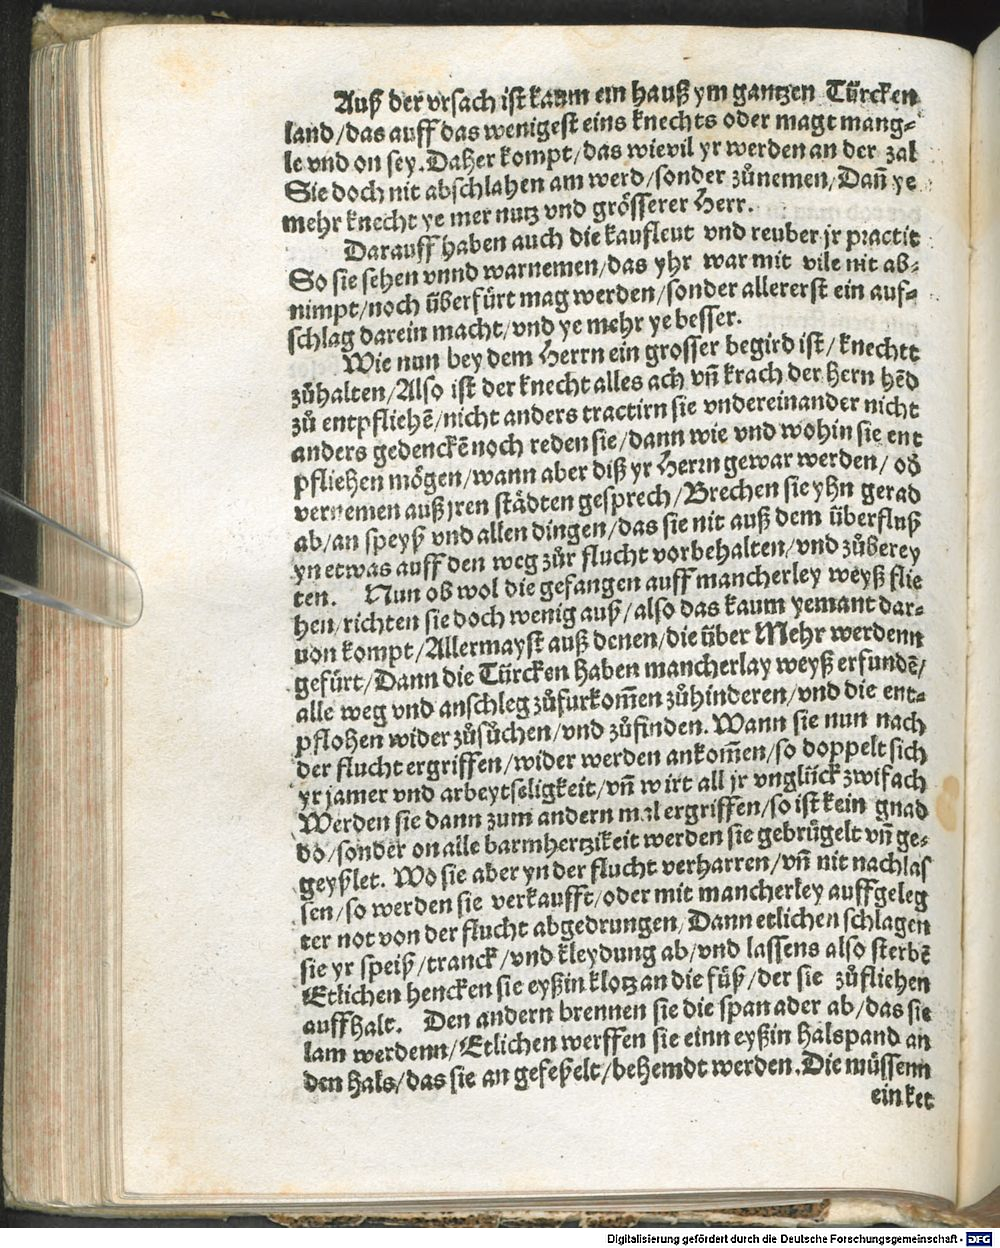 Auß der vrsach ist kaum ein hauß ym gantzen Türcken
land/das auff das wenigest eins knechts oder magt mang-
le vnd on sey. Daher kompt/das wievil yr werden an der zal
Sie doch nit abschlahen am werd/sonder zůnemen/Dañ ye
mehr knecht ye mer nutz vnd grösserer Herr.
Darauff haben auch die kaufleut vnd reuber jr practic
So sie sehen vnnd warnemen/das yhr war mit vile nit ab-
nimpt/noch überfürt mag werden/sonder allererst ein auf-
schlag darein macht/vnd ye mehr ye besser.
Wie nun bey dem Herrn ein grosser begird ist/knechtt
zůhalten/Also ist der knecht alles ach vñ krach der hern hẽd
zů entpfliehẽ/nicht anders tractirn sie vndereinander nicht
anders gedenckẽ noch reden sie/dann wie vnd wohin sie ent
pfliehen mögen/wann aber diß yr Herrn gewar werden/od
vernemen auß jren städten gesprech/Brechen sie yhn gerad
ab/an speyß vnd allen dingen/das sie nit auß dem überfluß
yn etwas auff den weg zůr flucht vorbehalten/vnd zůberey
ten. Nun ob wol die gefangen auff mancherley weyß flie
hen/richten sie doch wenig auß/also das kaum yemant dar-
uon kompt/Allermayst auß denen/die über Mehr werdenn
gefürt/Dann die Türcken haben mancherlay weyß erfundẽ/
alle weg vnd anschleg zůfurkom̃en zůhinderen/vnd die ent-
pflohen wider zůsůchen/vnd zůfinden. Wann sie nun nach
der flucht ergriffen/wider werden ankom̃en/so doppelt sich
yr jamer vnd arbeytseligkeit/vñ wirt all jr vnglück zwifach
Werden sie dann zum andern mal ergriffen/so ist kein gnad
do/sonder on alle barmhertzikeit werden sie gebrügelt vñ ge-
geyßlet. Wo sie aber yn der flucht verharren/vñ nit nachlas
sen/so werden sie verkaufft/oder mit mancherley auffgeleg
ter not von der flucht abgedrungen/Dann etlichen schlagen
sie yr speiß/tranck/vnd kleydung ab/vnd lassens also sterbẽ
Etlichen hencken sie eyßin klotz an die füß/der sie zůfliehen
auffhalt. Den andern brennen sie die span ader ab/das sie
lam werdenn/Etlichen werffen sie einn eyßin halspand an
den hals/das sie an gefeßelt/behemdt werden. Die müssenn
ein ket
Digitalisierung gefördert durch die Deutsche Forschungsgemeinschaft - DFG